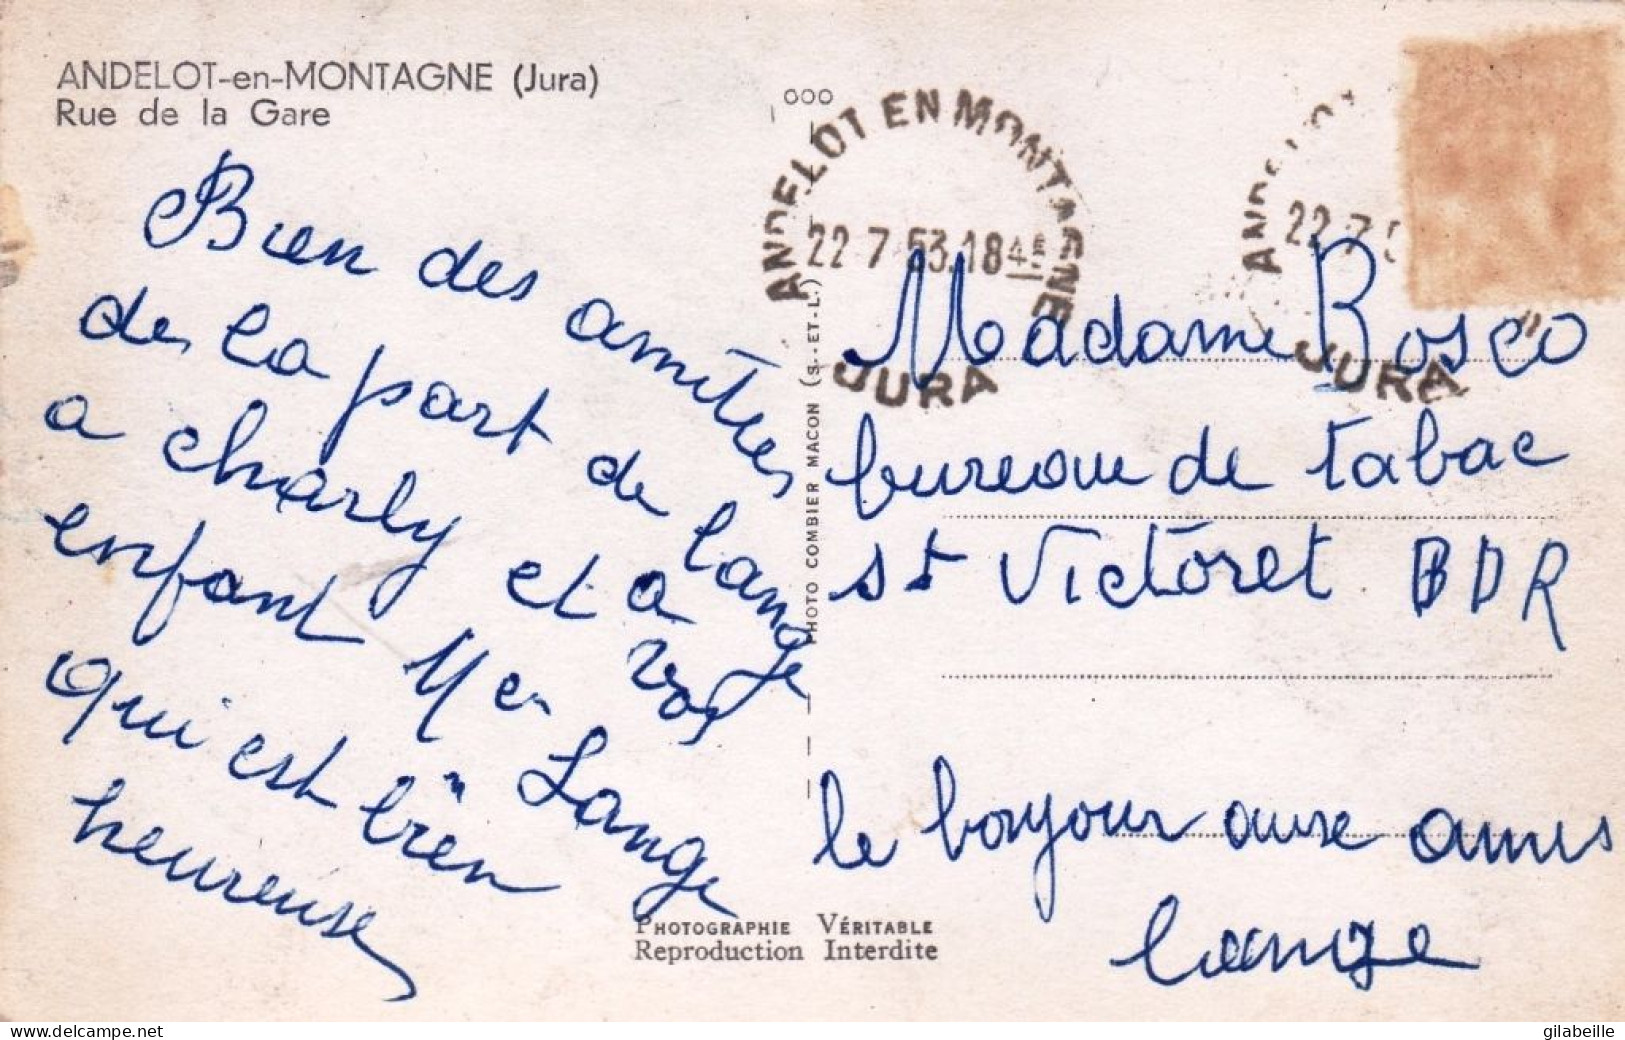 ANDELOT-en-MONTAGNE (Jura)
Rue de la Gare
Bien des amitiés
de la part de lange
a charly et a vos
enfant Mer Lange
qui est bien
heureuse
PHOTO COMBIER MACON (S.-ET-L.)
PHOTOGRAPHIE VÉRITABLE
Reproduction Interdite
ANDELOT EN MONTAGNE
22-7 53.18 45
JURA
22-7
JURA
Madame Bosco
bureau de tabac
st Victoret BDR
le bonjour auxe amis
lange
www.delcampe.net
gilabeille